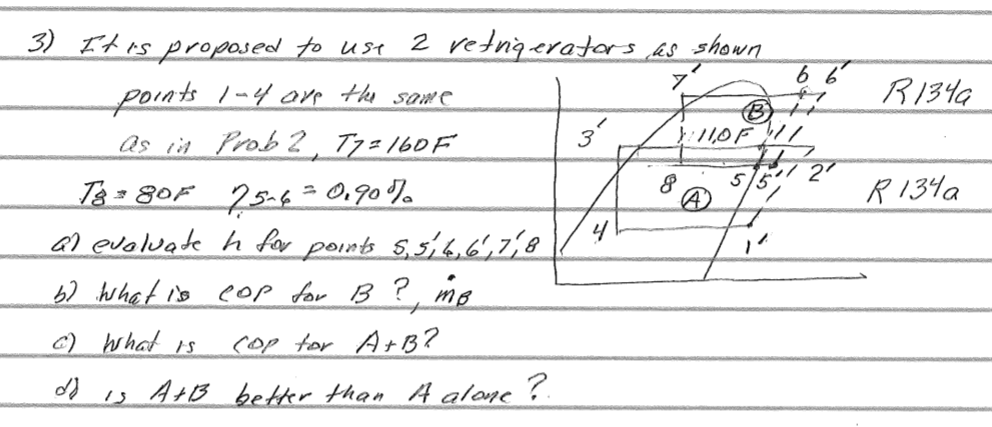 3) It is proposed to use 2 refrigerators as shown
points 1-4 are the same
as in Prob 2, T7=160F
T8=80F η5-6=0.90%
a) evaluate h for points 5,5',6,6',7',8
b) What is COP for B?, ṁB
c) What is COP for A+B?
d) is A+B better than A alone?
7' 6 6' R134a
B
3' 110F
8 5 5' 2' R134a
A
4 1'